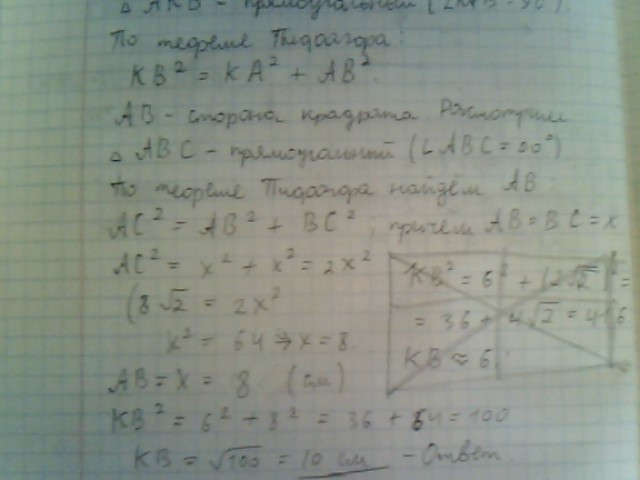 △ AKB - прямоугольный (∠KAB = 90°)
По теореме Пифагора:
KB² = KA² + AB².
AB - сторона квадрата Рассмотрим
△ ABC - прямоугольный (∠ABC = 90°)
По теореме Пифагора найдём AB:
AC² = AB² + BC², причём AB = BC = x
AC² = x² + x² = 2x²
(8√2 = 2x²
x² = 64 ⇒ x = 8
AB = x = 8 (см)
KB² = 6² + 8² = 36 + 64 = 100
KB = √100 = 10 см - Ответ
KB² = 6² + (2√2)² =
= 36 + 4√2 = 4√6
KB ≈ 6